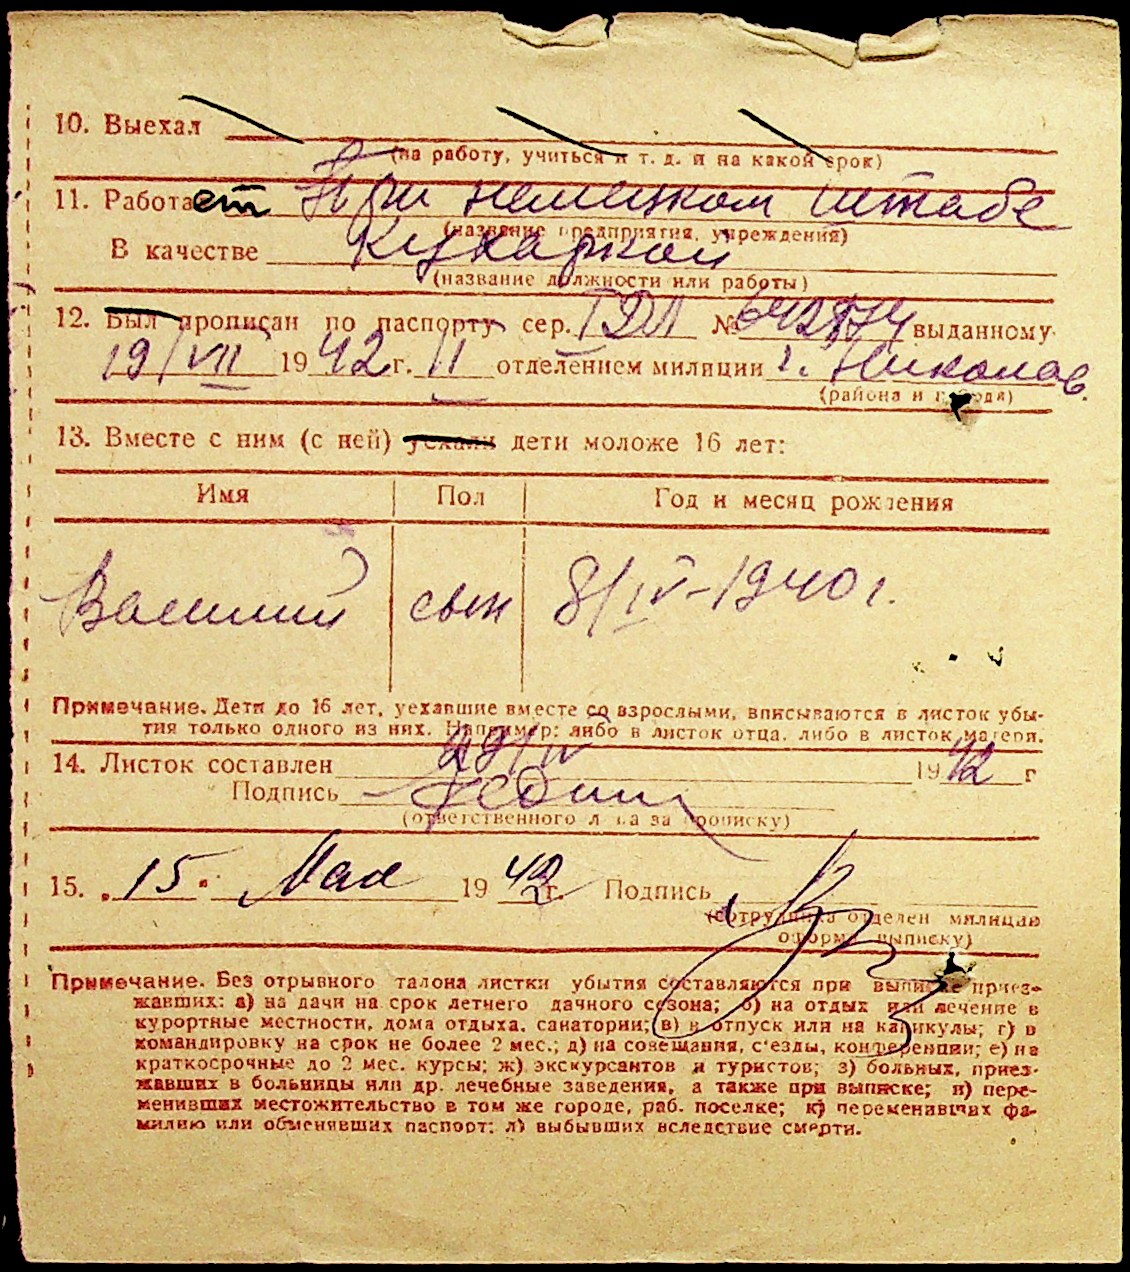 10. Выехал
(на работу, учиться и т. д. и на какой срок)
11. Работает При немецком штабе
(название предприятия, учреждения)
В качестве Кухаркой
(название должности или работы)
12. Был прописан по паспорту сер. № выданному
19/VII 1942 г. II отделением милиции г. Николаев.
(района и города)
13. Вместе с ним (с ней) уехали дети моложе 16 лет:
Имя Пол Год и месяц рождения
Василий сын 8/IV-1940 г.
Примечание. Дети до 16 лет, уехавшие вместе со взрослыми, вписываются в листок убы-
тия только одного из них. Например: либо в листок отца, либо в листок матери.
14. Листок составлен 29/IV 1942 г
Подпись
(ответственного лица за прописку)
15. 15. Мая 1942 г. Подпись
(сотрудника отделен милиции
оформ. выписку)
Примечание. Без отрывного талона листки убытия составляются при выписке приез-
жавших: а) на дачи на срок летнего дачного сезона; б) на отдых или лечение в
курортные местности, дома отдыха, санатории; в) в отпуск или на каникулы; г) в
командировку на срок не более 2 мес.; д) на совещания, с'езды, конференции; е) на
краткосрочные до 2 мес. курсы; ж) экскурсантов и туристов; з) больных, приез-
жавших в больницы или др. лечебные заведения, а также при выписке; и) пере-
менивших местожительство в том же городе, раб. поселке; к) переменивших фа-
милию или обменявших паспорт; л) выбывших вследствие смерти.